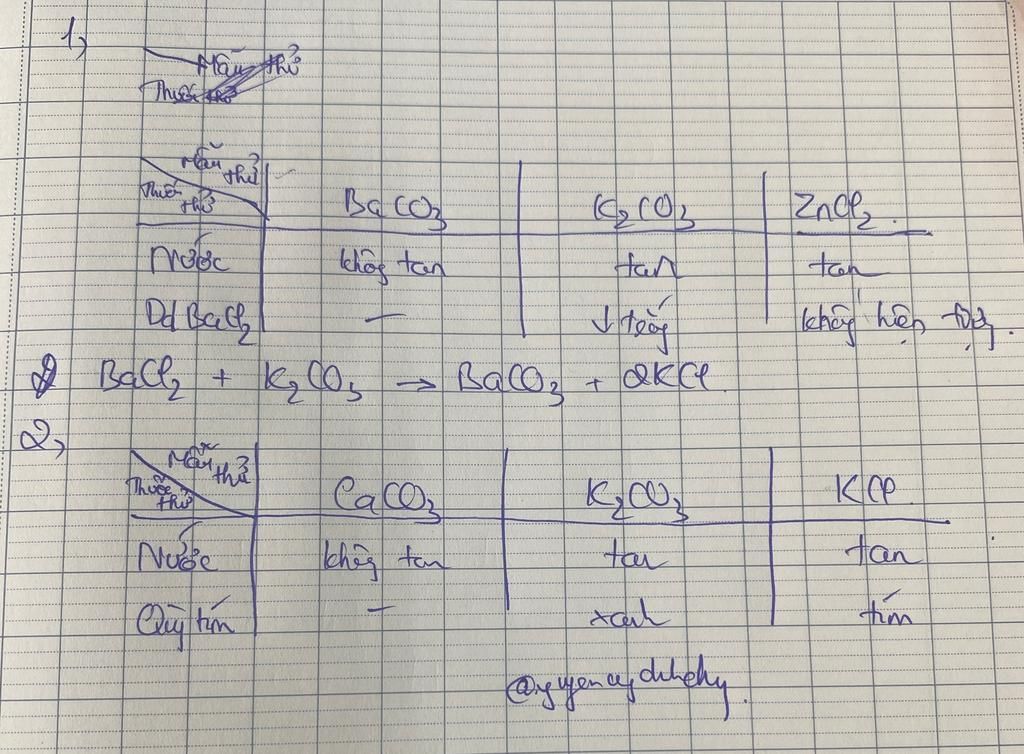 1,
Mẫu thử
Thuốc thử
Mẫu thử
Thuốc thử
BaCO3 K2CO3 ZnCl2.
Nước không tan tan tan
Dd BaCl2 — ↓ trắng không hiện tượng.
BaCl2 + K2CO3 → BaCO3 + 2KCl
2,
Mẫu thử
Thuốc thử
CaCO3 K2CO3 KCl.
Nước không tan tan tan
Quỳ tím — xanh tím